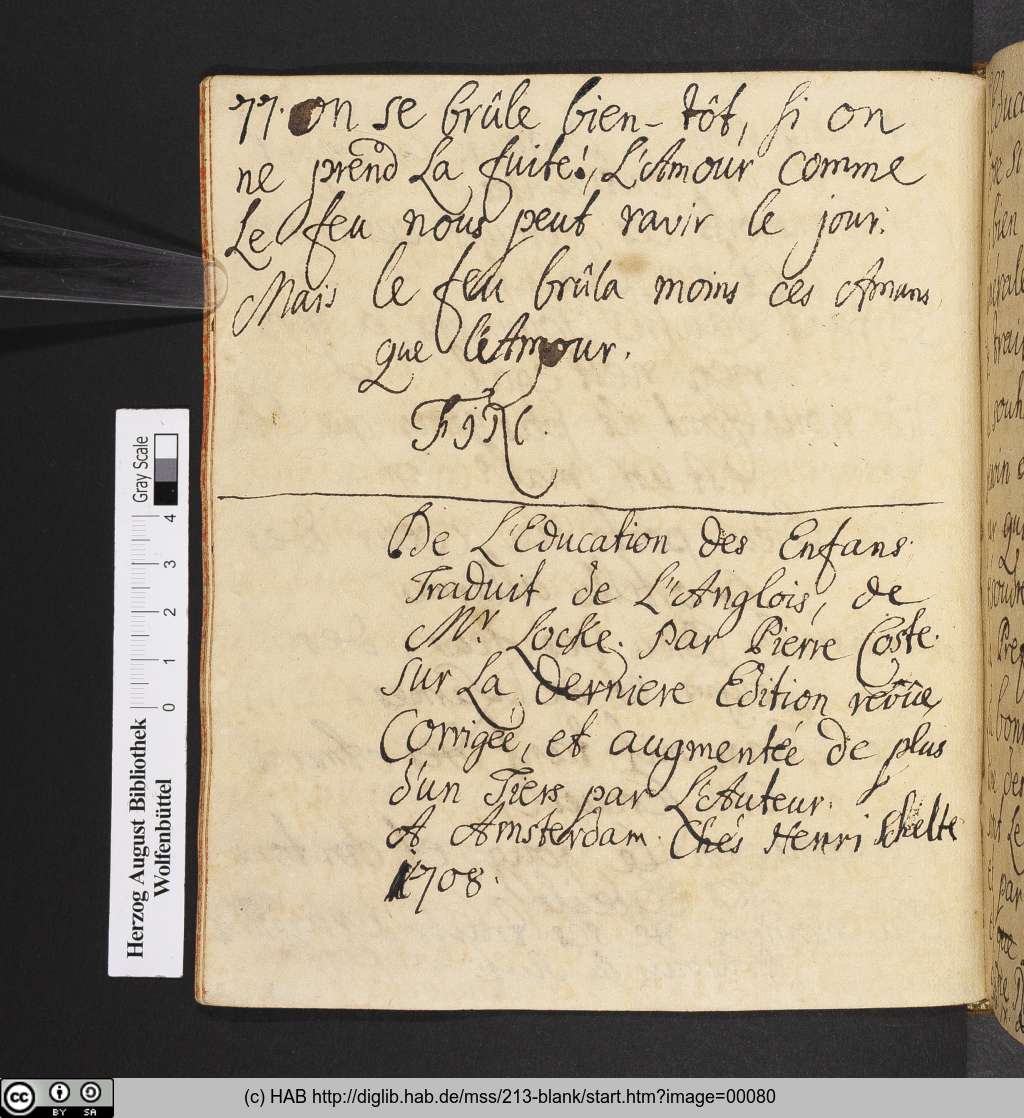 77. on se brûle bien-tôt, si on
ne prend La fuite!, L'Amour comme
Le feu nous peut ravir le jour:
Mais le feu brûla moins ces Amans
que l'Amour.
De L'Education des Enfans
Traduit de L'Anglois, de
Mr. Locke. par Pierre Coste.
sur La derniere Edition revûe,
Corrigée, et augmentée de plus
d'un Tiers par L'Auteur.
A Amsterdam. Chés Henri Schelte
1708.
Gray Scale
0 1 2 3 4
Herzog August Bibliothek
Wolfenbüttel
cc BY SA
(c) HAB http://diglib.hab.de/mss/213-blank/start.htm?image=00080